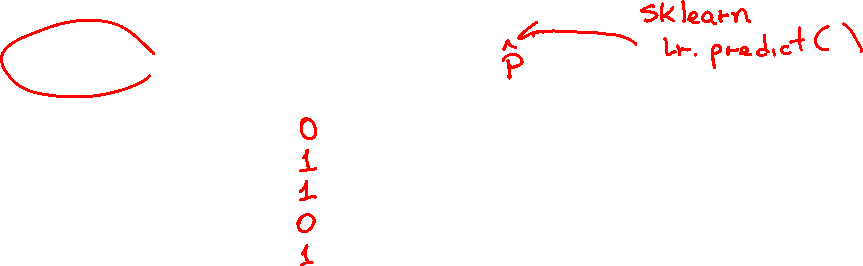 sklearn
Lr. predict( )
p̂
0
1
1
0
1